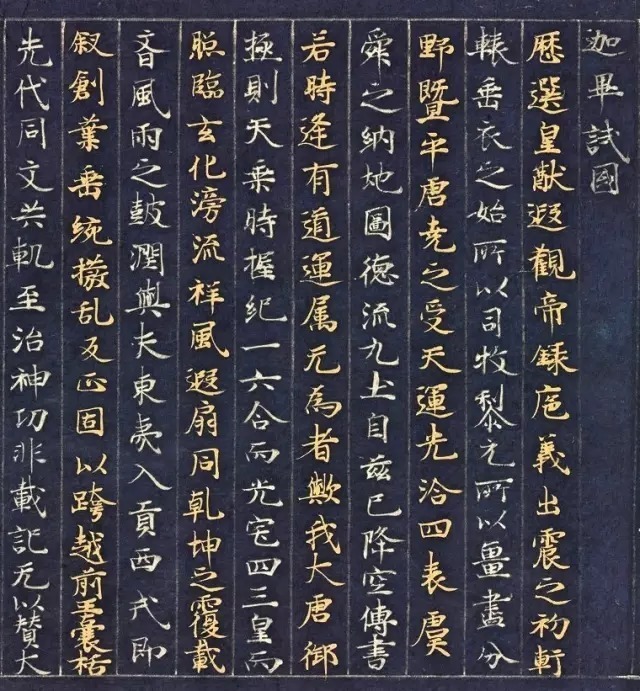 迦畢試國
歴選皇猷遐觀帝録庖義出震之初軒
轅垂衣之始所以司牧黎元所以畺畫分
野暨乎唐尭之受天運光洽四表虞
舜之納地圖德流九土自茲已降空傳書
若時逢有道運属无為者歟我大唐御
極則天乗時握紀一六合而光宅四三皇而
照臨玄化滂流祥風遐扇同乾坤之覆載
齊風雨之鼓潤與夫東夷入貢西戎即
叙創業垂統撥乱反正固以跨越前王囊括
先代同文共軌至治神功非載記无以賛大